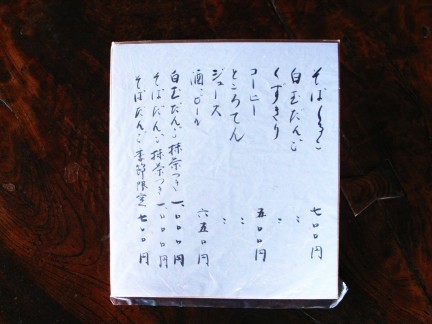 そばしるこ 七〇〇円
白玉だんご 〃
くずきり 〃
コーヒー 五〇〇円
ところてん 〃
ジュース 〃
酒、ビール 六五〇円
白玉だんご抹茶つき 一、〇〇〇円
そばだんご抹茶つき 一、〇〇〇円
そばだんご季節限定 七〇〇円